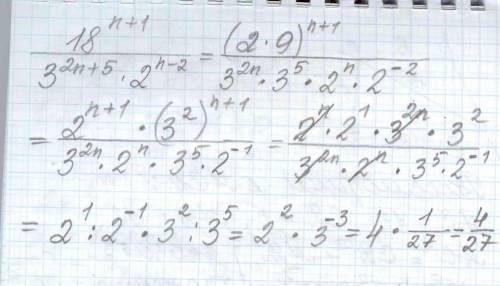 18^(n+1) / (3^(2n+5) · 2^(n-2)) = (2·9)^(n+1) / (3^(2n) · 3^5 · 2^n · 2^(-2))
= 2^(n+1) · (3^2)^(n+1) / (3^(2n) · 2^n · 3^5 · 2^(-1)) = 2^n · 2^1 · 3^(2n) · 3^2 / (3^(2n) · 2^n · 3^5 · 2^(-1))
= 2^1 : 2^(-1) · 3^2 : 3^5 = 2^2 · 3^(-3) = 4 · 1/27 = 4/27